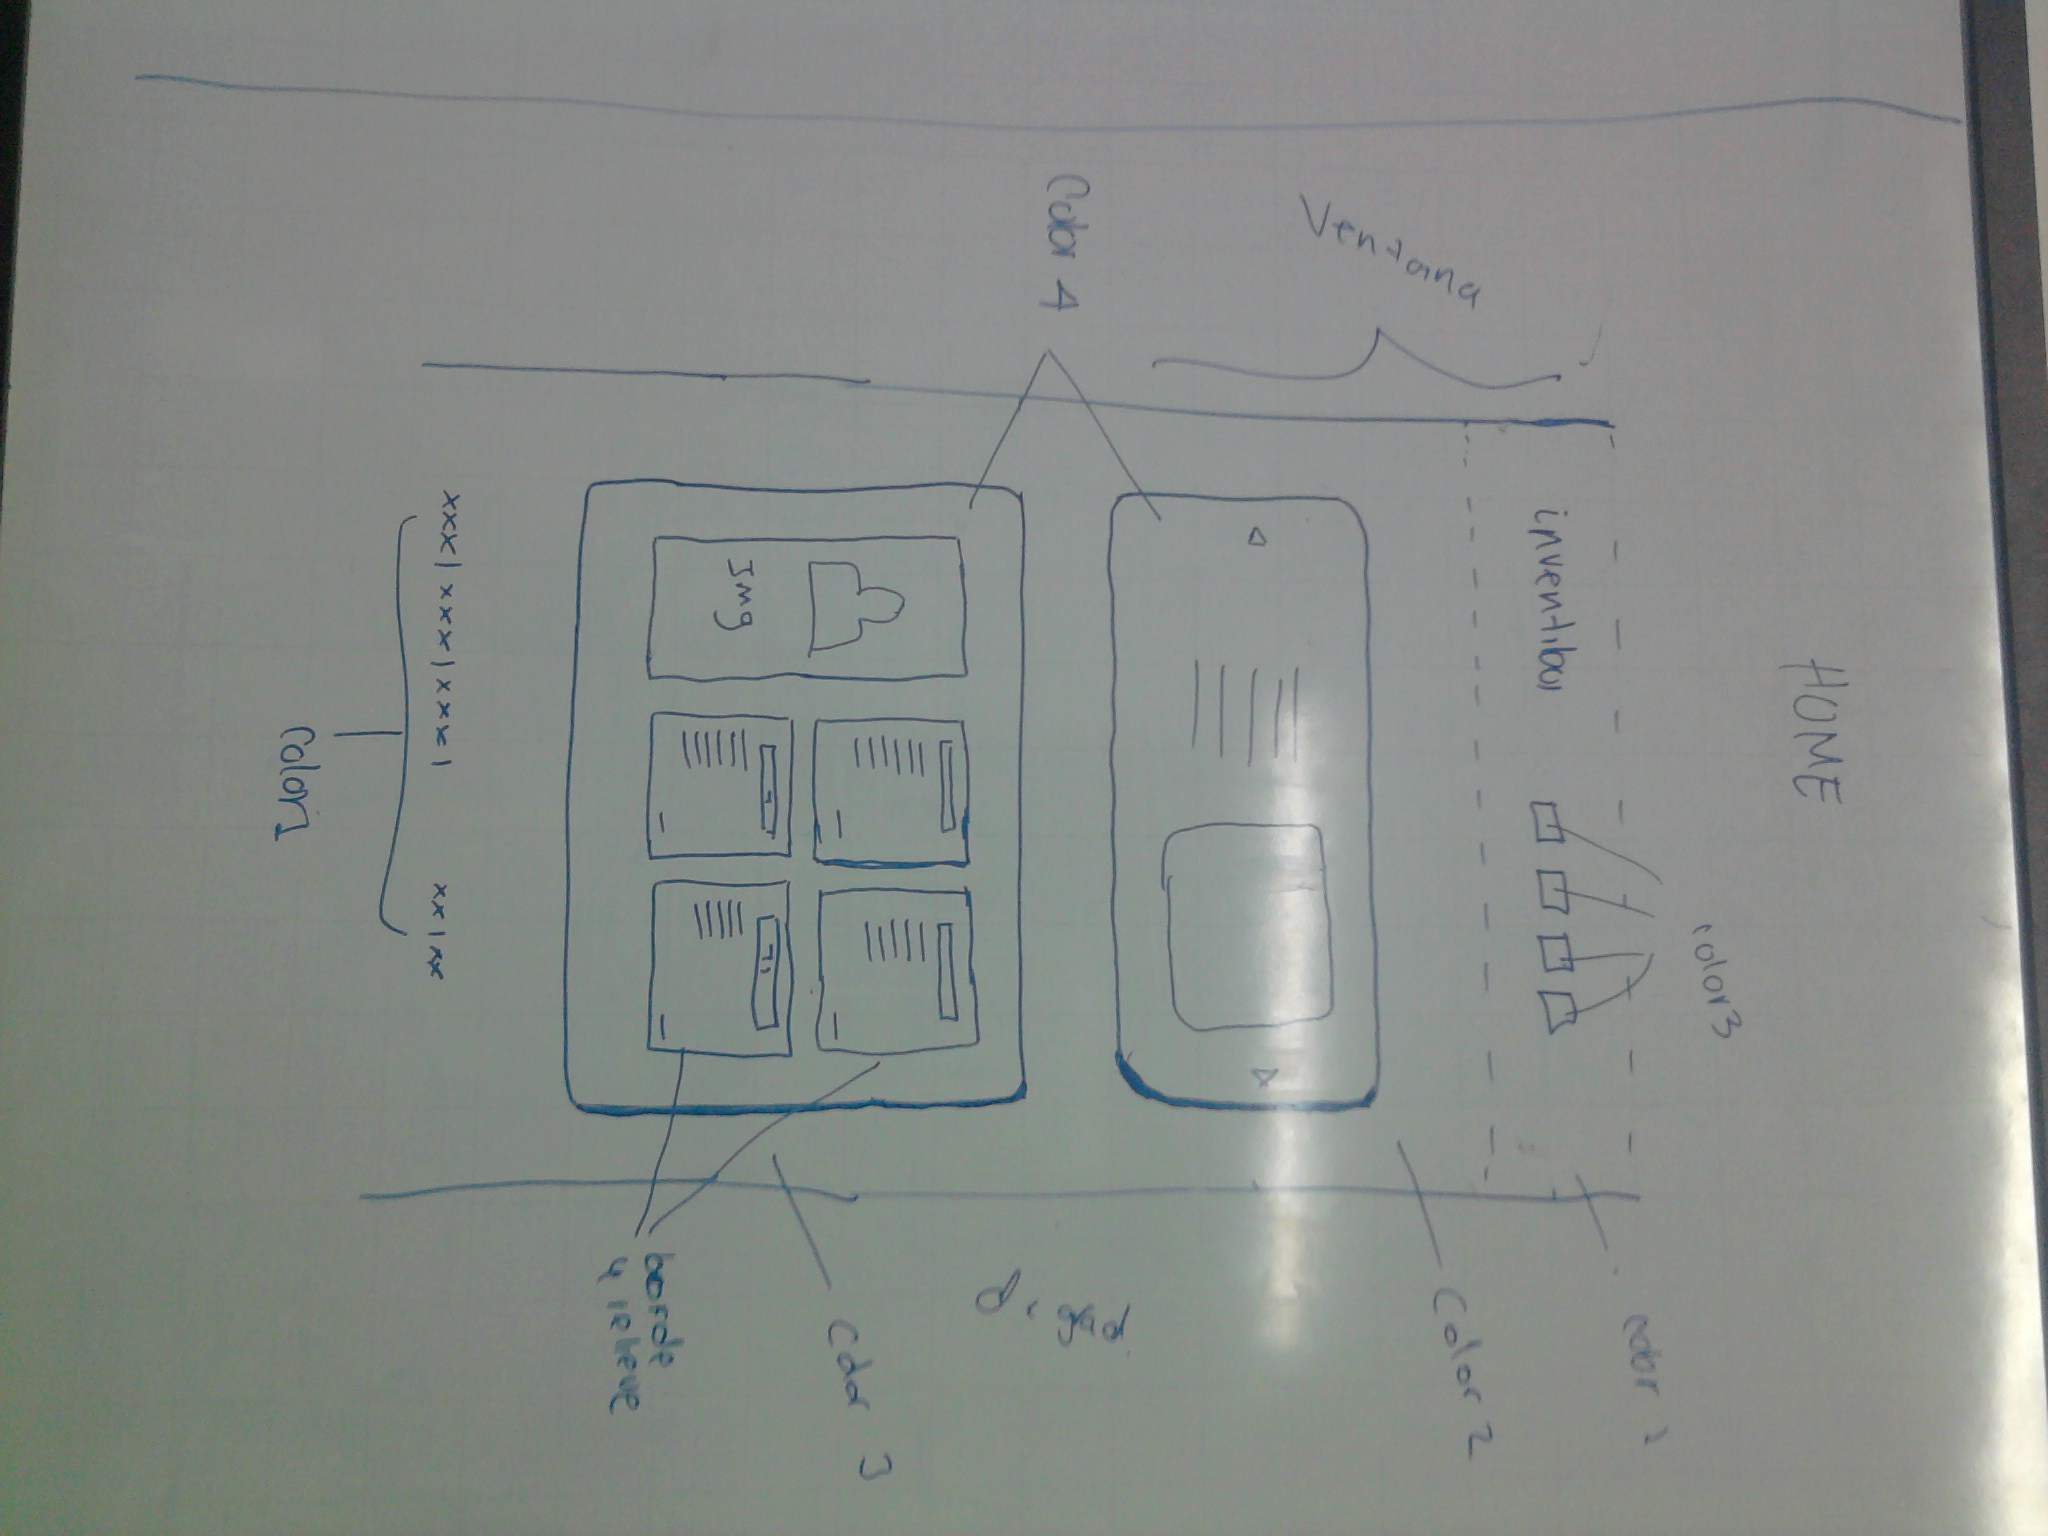 HOME
color3
color 1
inventibol
Color 2
Ventana
Color 4
Color 3
Img
borde
y relieve
xxx|xxx|xxx|
xx|xx
Color1